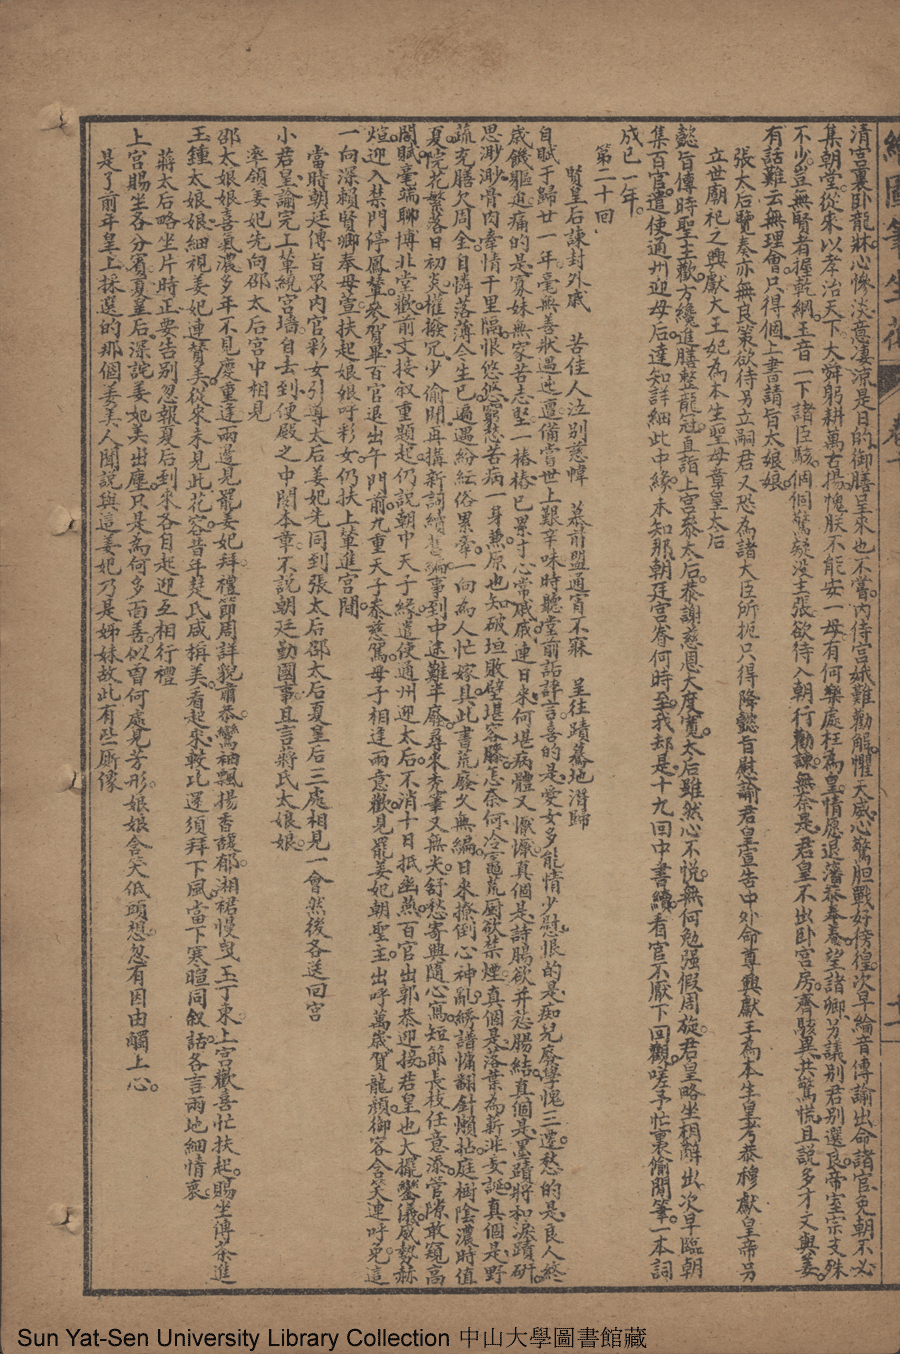 繪圖筆生花
清宮裏卧龍牀。心慘淡意凄凉。是日的御膳呈來也不嘗。內侍宮娥難勸解。懼天威心驚胆戰好徬徨。次早綸音傳諭出。命諸官免朝不必
集朝堂。從來以孝治天下。大舜躬耕萬古揚。愧朕不能安一母。有何樂處枉為皇。情愿退藩恭奉養。望諸卿另議别君别選良。帝室宗支殊
不少。豈無賢者握乾綱。玉音一下諸臣駭。個個驚疑没主張。欲待入朝行勸諫。無奈是君皇不出卧宮房。齊駭異共驚慌。且說多才文與姜。
有話難云無理會。只得個上書請旨太娘娘。
張太后覽奏亦無良策欲待另立嗣君又恐為諸大臣所扼只得降懿旨慰諭君皇宣告中外命尊興獻王為本生皇考恭穆獻皇帝另
立世廟祀之興獻大王妃為本生聖母章皇太后
懿旨傳時聖主歡。方纔進膳整龍冠。直詣上宮參太后。恭謝慈恩大度寬。太后雖然心不悅。無何勉强假周旋。君皇略坐相辭出。次早臨朝
集百官。遣使通州迎母后。達知詳細此中緣。未知那朝廷宮眷何時至。我却是十九回中書續。看官不厭下回觀。嗟予忙裏偷閒筆。一本詞
成已一年。
第二十回
賢皇后諫封外戚　苦佳人泣别慈幃　慕前盟通宵不寐　呈往蹟驀地潛歸
自賦于歸廿一年。毫無善狀遇迍邅。備嘗世上艱辛味。時聽堂前詬誶言。喜的是愛女多能情少慰。恨的是痴兒廢學愧三遷。愁的是良人終
歲饑軀迫。痛的是寡妹無家苦志堅。一樁樁已累寸心常戚戚。連日來何堪病體又懨懨。真個是詩腸欲并愁腸結。真個是墨蹟將和淚蹟硏。
思渺渺骨肉牽情千里隔。恨悠悠窮愁苦病一身兼。原也知破垣敗壁堪容膝。怎奈何冷竈荒厨欲禁煙。真個是落葉為薪非妄誕。真個是野
疏充膳欠周全。自憐落薄今生已。遍遇紛紜俗累牽。一向為人忙嫁具。此書荒廢久無編。日來撩倒心神亂。綉譜慵翻針懶拈。庭樹陰濃時值
夏。院花繁落日初炎。權撥冗少偷閒。再搆新詞續舊編。事到中途難半廢。尋來禿筆又無尖。舒愁寄興隨心寫。短節長枝任意添。管隙敢窺高
閣賦。毫端聊博北堂歡。前文接叙重題起。仍說朝中天子綠。遣使通州迎太后。不消十日抵幽燕。百官出郭恭迎接。若皇也大擺鑾儀威勢赫
煊。迎入禁門停鳳輦。參賀畢百官退出午門前。九重天子參慈駕。母子相逢兩意歡。見罷姜妃朝聖主。出呼萬歲賀龍顔。御容含笑連呼免。這
一向深賴賢卿奉母萱。扶起娘娘呼彩女。仍扶上輦進宮閒。
當時朝廷傳旨眾內官彩女引導太后姜妃先同到張太后邵太后夏皇后三處相見一會然後各送回宮
小君皇諭完工輦繞宮墙。自去到便殿之中閱本章。不說朝廷勤國事。且言蔣氏太娘娘。
率領姜妃先向邵太后宮中相見
邵太娘娘喜氣濃。多年不見慶重逢。兩邊見罷姜妃拜。禮節周詳貌肅恭。鸞袖飄揚香馥郁。湘裙慢曳玉丁東。上宮歡喜忙扶起。賜坐傳茶進
玉鍾。太娘娘細視姜妃連贊美。從來未見此花容。昔年楚氏咸稱美。看起來較比還須拜下風。當下寒暄同叙話。各言兩地細情衷。
蔣太后略坐片時正要告别忽報夏后到來各自起迎互相行禮
上宮賜坐各分賓。夏皇后深說姜妃美出塵。只是為何多面善。似曾何處見芳形。娘娘含笑低頭想。忽有因由觸上心。
是了前年皇上採選的那個姜美人聞說與這姜妃乃是姊妹故此有些厮像
Sun Yat-Sen University Library Collection 中山大學圖書館藏